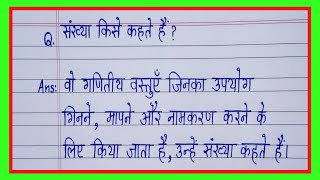 Q. संख्या किसे कहते हैं ?
Ans: वो गणितीय वस्तुएँ जिनका उपयोग
गिनने, मापने और नामकरण करने के
लिए किया जाता है, उन्हें संख्या कहते हैं।